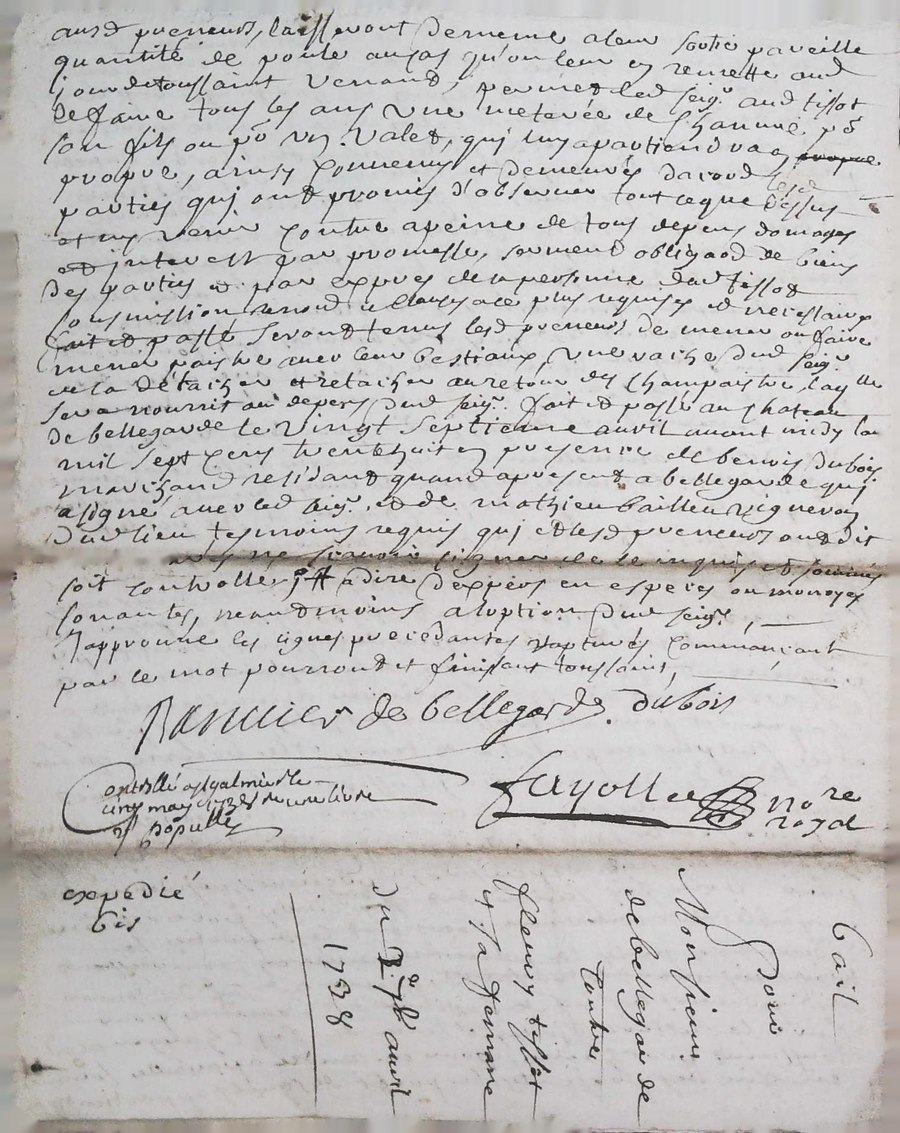 ausd preneurs, laisseront de meme a leur sortie pareille
quantité de poule au cas qu'on leur en remette aud
jour de toussaint venant, permet led seigr aud tissot
de faire tous les ans une meterée de chanvre pr
son fils ou pr un valet, qui luy apartiendra en propre
propre, ainsy convenu et demeurés dacord lesd
parties qui ont promis d'observer tout ce que dessus
et ny venir contre a peine de tous depens domages
et interest par promesse, serment obligaon de biens
des parties et par expres de la personne dud tissot
soumission renon et clauses a ce plus requises et necessaires
fait et passé seront tenus lesd preneurs de mener ou faire
mener paistre avec leur bestiaux, une vache dud seigr
et la détacher et retacher au retour des champaistre laqlle
sera nourrit au depens dud seigr. fait et passé au chateau
de bellegarde le vingt septieme avril avant midy lan
mil sept cens trente huit en presence de benois dubois
marchand residant quand apresent a bellegarde qui
a signé avec led seigr. et de mathieu bailleu vigneron
dud lieu tesmoins requis qui et lesd preneurs ont dit
ne scavoir signer de ce enquis et sommés
soit controllé a dire d'expers en especes ou monoyes
sonantes, neantmoins a loption dud seigr,
J'approuve les lignes precedantes rapturés commançant
par le mot pourront et finissant toussaint,
de bellegarde. dubois
Controllé a st galmier le
cinq may 1738 reçu une livre
fayolle nore
royal
expedié
bis
Bail
pour
Monsieur
de bellegarde
Contre
fleury tissot
et sa femme
du 27e avril
1738